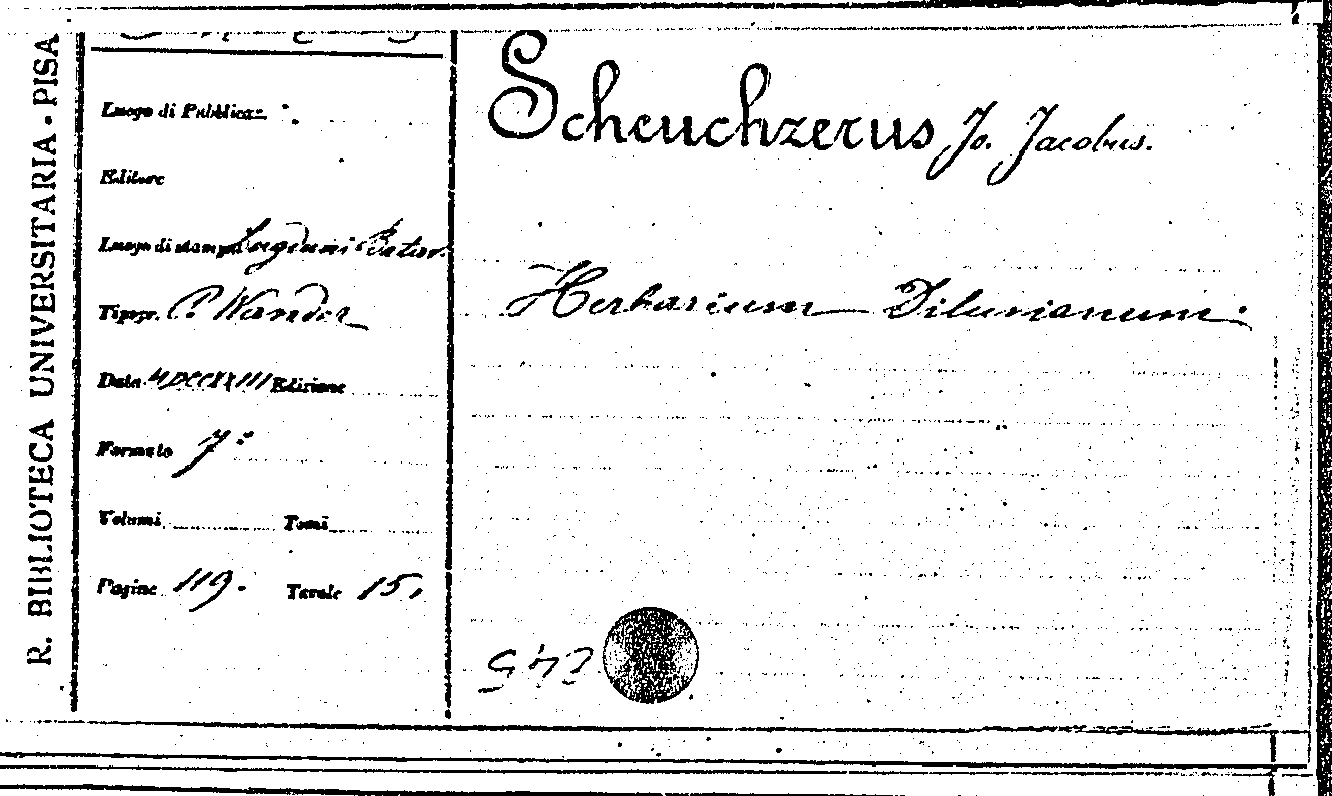 R. BIBLIOTECA UNIVERSITARIA - PISA
Luogo di Pubblicaz.
Editore
Luogo di stampa Lugduni Batav.
Tipogr. P. Vander
Data MDCCXXIII Edizione
Formato
Volumi Tomi
Pagine 119. Tavole 15.
Scheuchzerus Jo. Jacobus.
Herbarium Diluvianum.